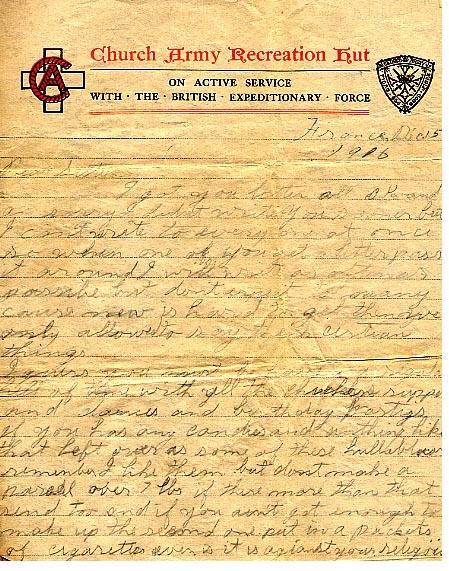 Church Army Recreation Hut
ON ACTIVE SERVICE
WITH · THE · BRITISH · EXPEDITIONARY · FORCE
France Dec 15
1916
Dear Sister
I got you letter all OK and
sorry I didnt write you sooner but
I cant write to everyone at once
so when one of you get a letter pass
it around I will write as often as
possible but dont expect to many
cause news is hard to get
only allowed to say certian
things
you must
of time with all the chicken suppers
and dances and birthday partys
if you has any candies and anthing like
that left over as some of these
remember I like them but dont make a
parcell over 7 lbs if theres more than that
send two and if you aint got enough to
make up the second one put in a packets
of cigarettes even is it is against your religion